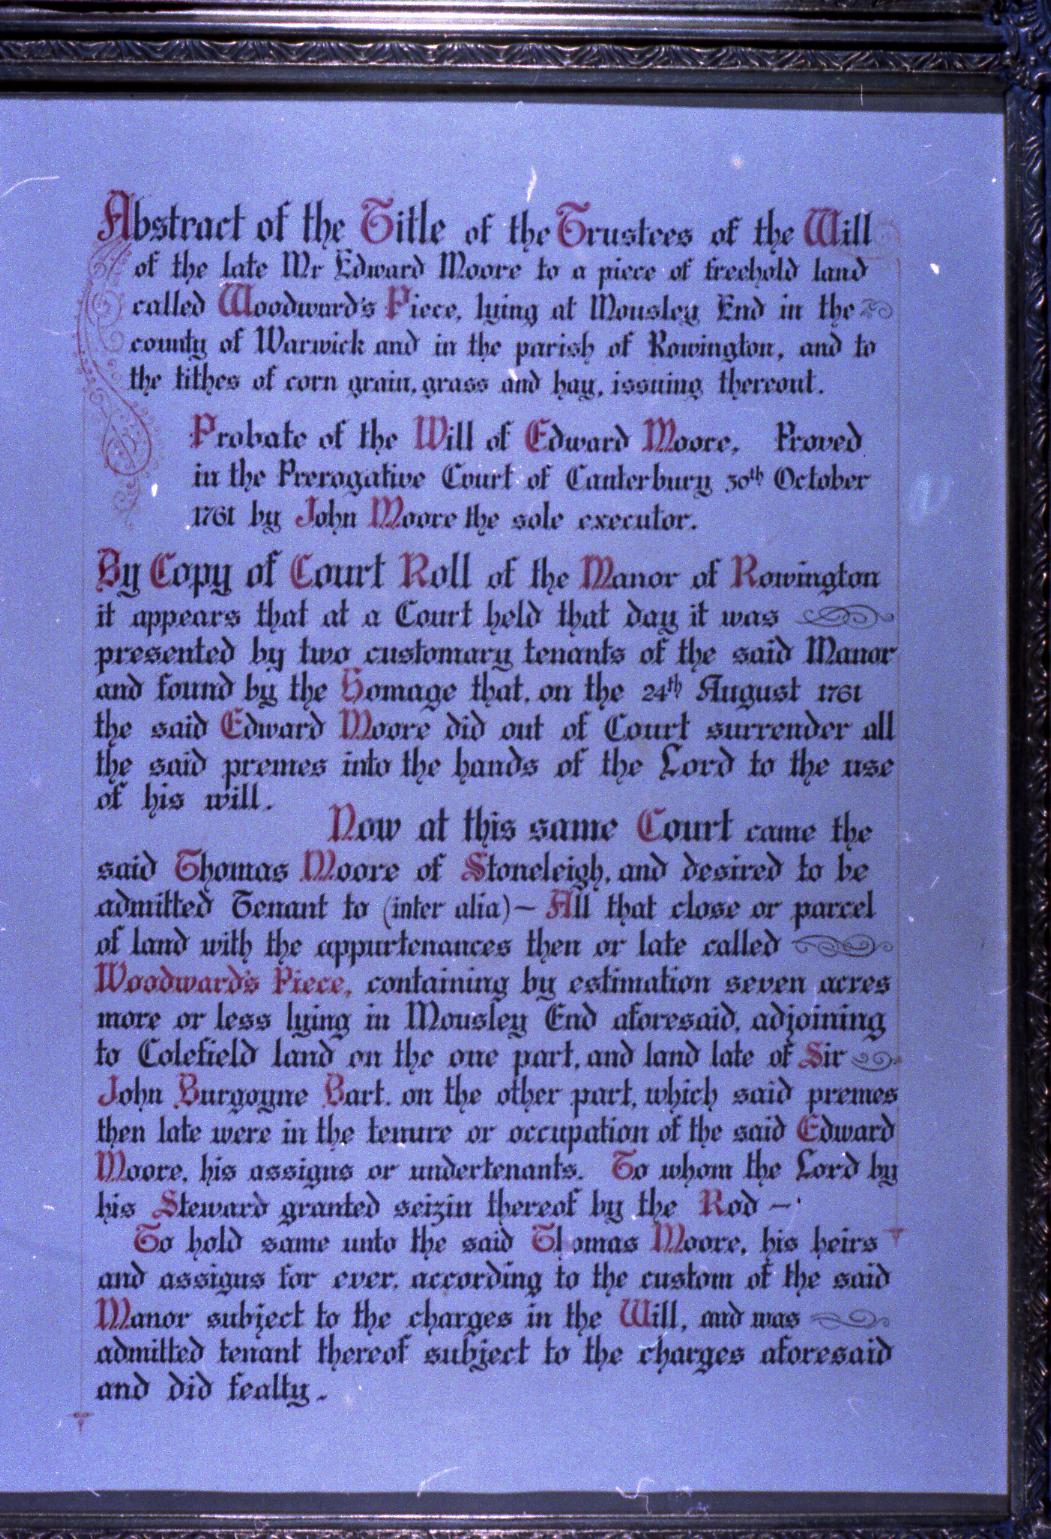 Abstract of the Title of the Trustees of the Will
of the late Mr Edward Moore to a piece of freehold land
called Woodward's Piece, lying at Mousley End in the
county of Warwick and in the parish of Rowington, and to
the tithes of corn grain, grass and hay, issuing thereout.
Probate of the Will of Edward Moore, Proved
in the Prerogative Court of Canterbury 30th October
1761 by John Moore the sole executor.
By Copy of Court Roll of the Manor of Rowington
it appears that at a Court held that day it was
presented by two customary tenants of the said Manor
and found by the Homage that, on the 24th August 1761
the said Edward Moore did out of Court surrender all
the said premes into the hands of the Lord to the use
of his will.
Now at this same Court came the
said Thomas Moore of Stoneleigh, and desired to be
admitted Tenant to (inter alia) – All that close or parcel
of land with the appurtenances then or late called
Woodward's Piece, containing by estimation seven acres
more or less lying in Mousley End aforesaid, adjoining
to Colefield land on the one part, and land late of Sir
John Burgoyne Bart. on the other part, which said premes
then late were in the tenure or occupation of the said Edward
Moore, his assigns or undertenants. To whom the Lord by
his Steward granted seizin thereof by the Rod –
To hold same unto the said Thomas Moore, his heirs
and assigns for ever, according to the custom of the said
Manor subject to the charges in the Will, and was
admitted tenant thereof subject to the charges aforesaid
and did fealty.